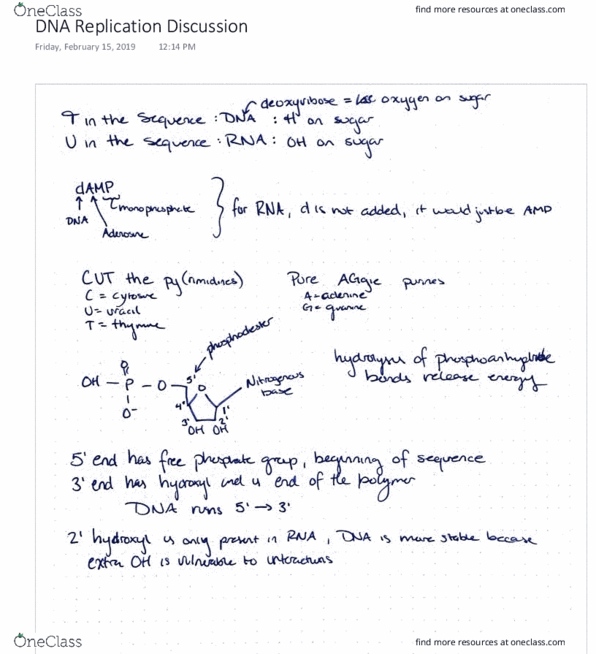 OneClass
find more resources at oneclass.com
DNA Replication Discussion
Friday, February 15, 2019 12:14 PM
deoxyribose = less oxygen on sugar
T in the sequence : DNA : H on sugar
U in the sequence : RNA : OH on sugar
dAMP
monophosphate
DNA
Adenosine
for RNA, d is not added, it would just be AMD
CUT the py(rimidines)
C = cytosine
U = uracil
T = thymine
Pure AGgie purines
A - adenine
G = guanine
phosphodiester
O
OH - P - O
O-
5'
O
4'
3'
2'
1'
OH OH
Nitrogenous
base
hydrolysis of phosphoanhydride
bonds release energy
5' end has free phosphate group, beginning of sequence
3' end has hydroxyl end of the polymer
DNA runs 5' → 3'
2' hydroxyl is only present in RNA, DNA is more stable because
extra OH is vulnerable to interactions
OneClass
find more resources at oneclass.com